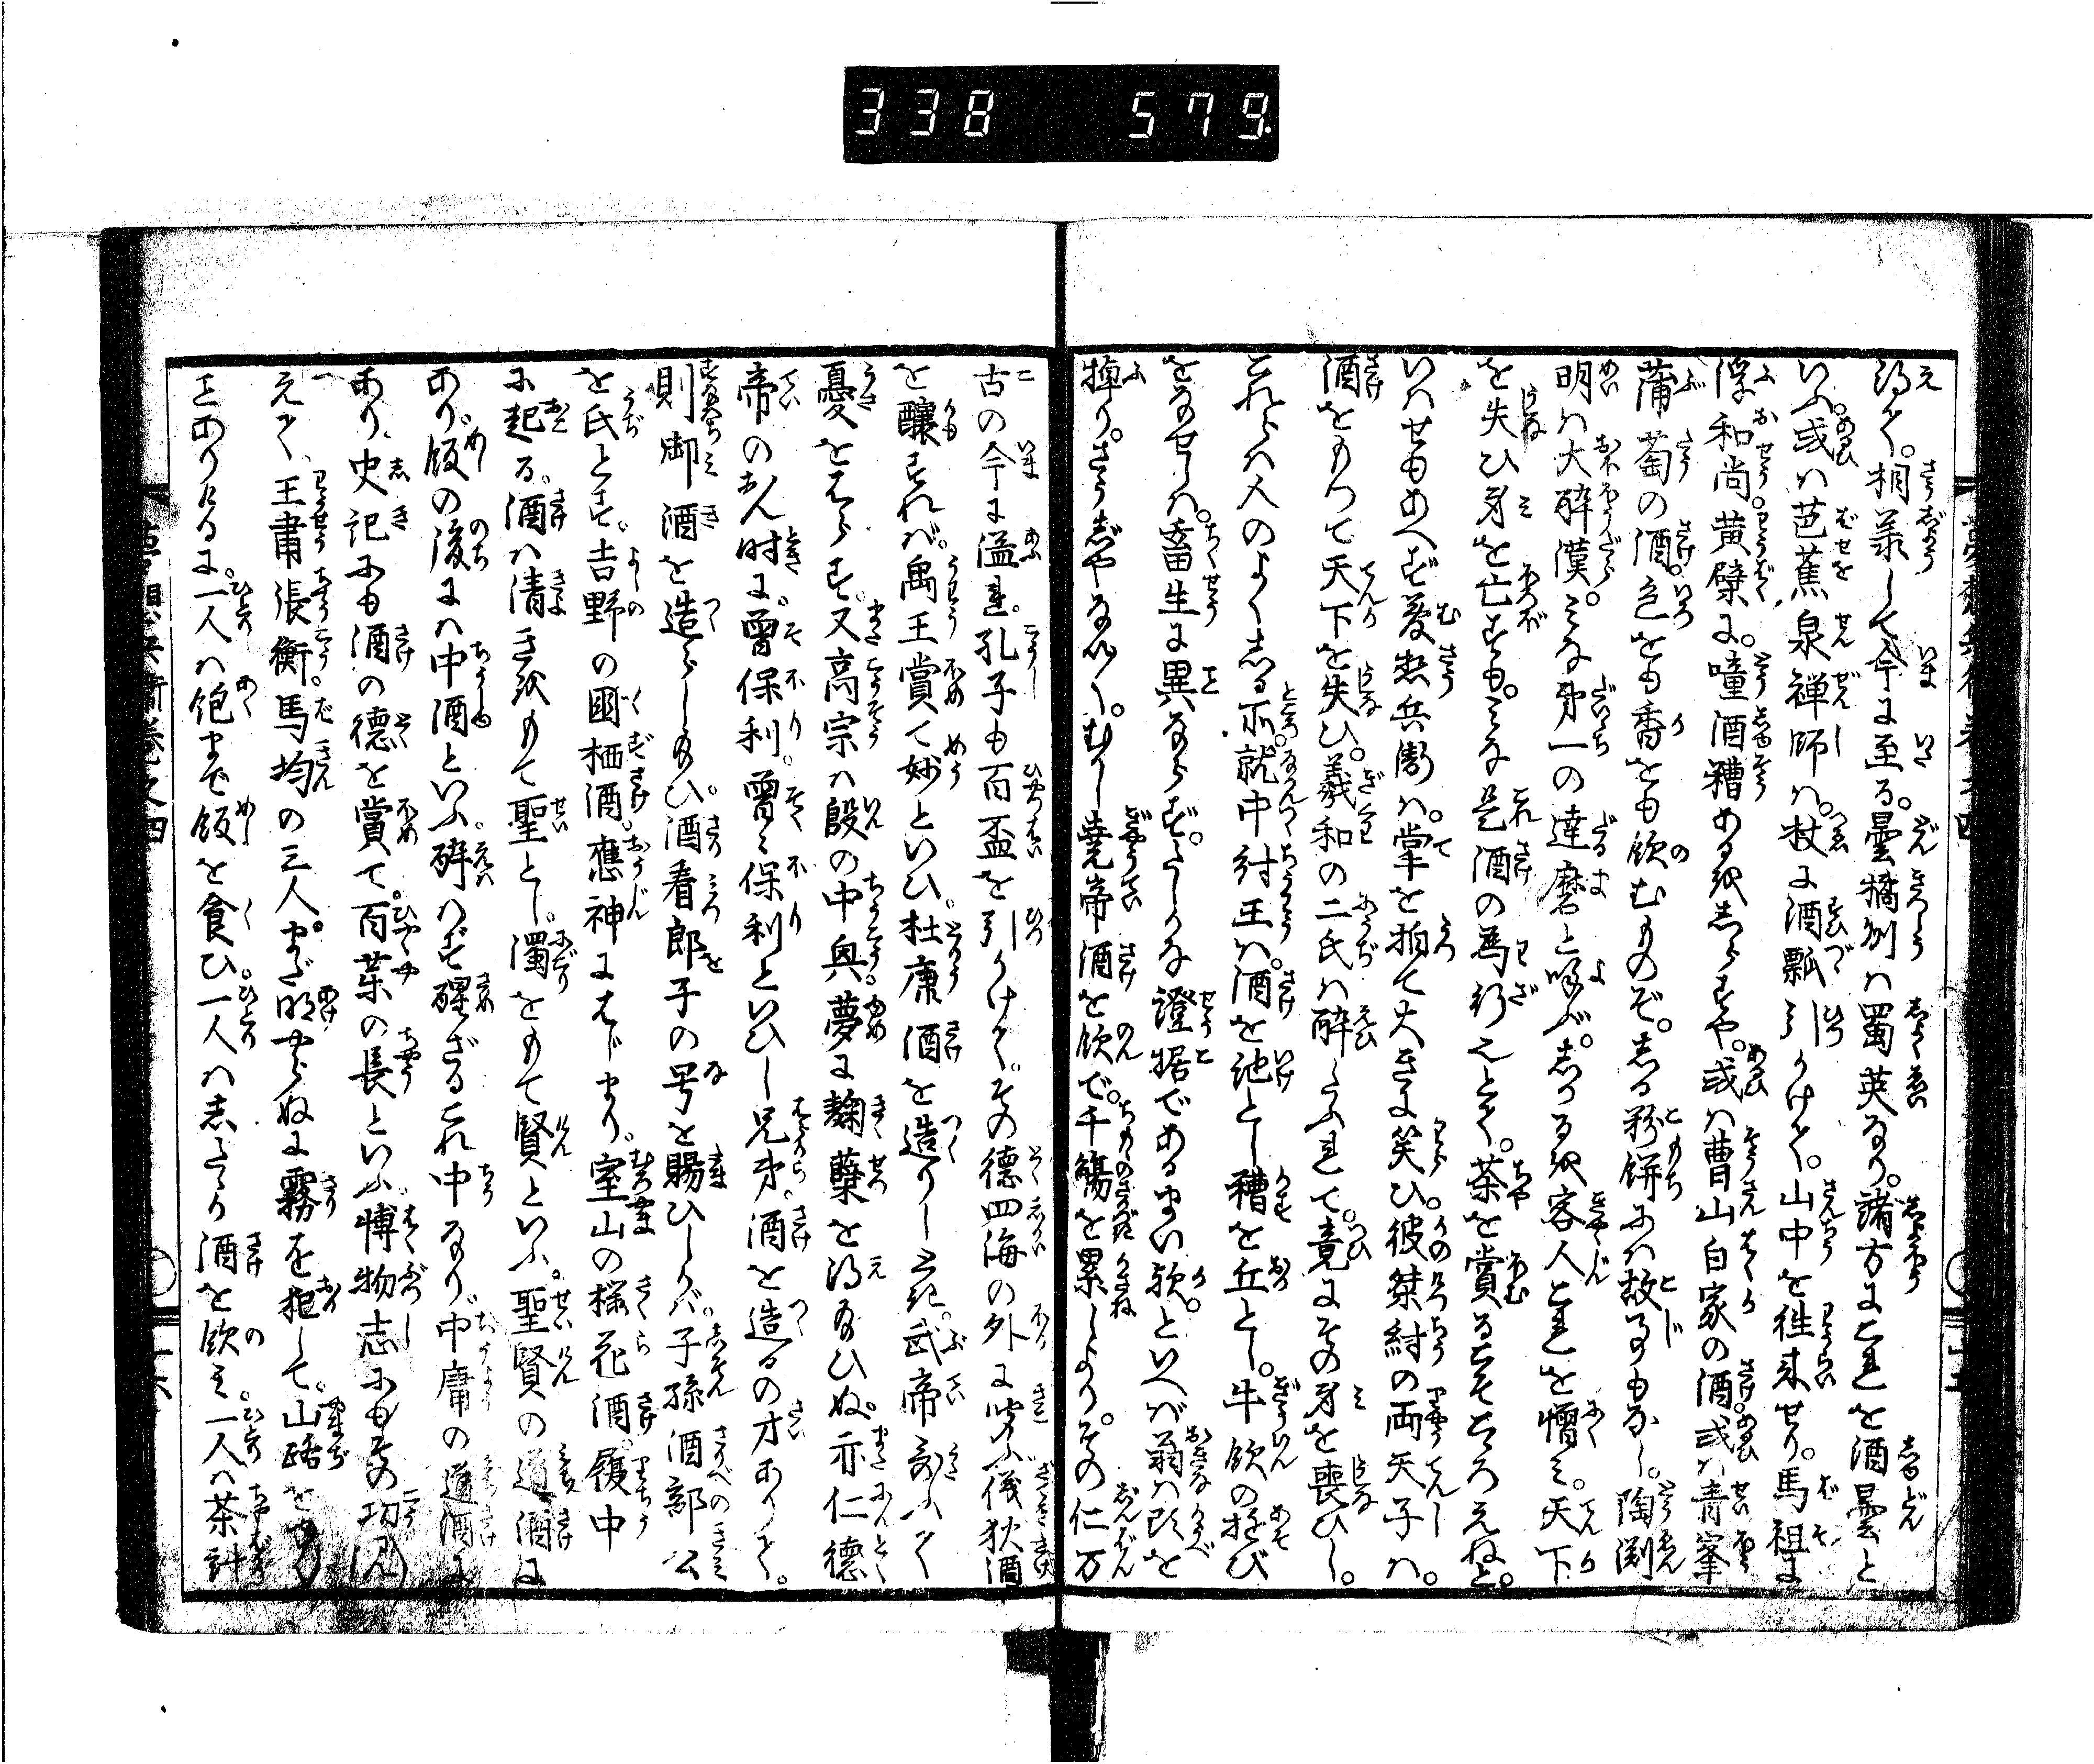 338 579
得て。相義して今に至る。曇橘州は蜀英なり。諸方にこれを酒曇と
いふ。或は芭蕉泉禅師は。杖に酒瓢引かけて。山中を徃来せり。馬祖に
浮和尚。黄檗に。噇酒糟あるをしらずや。或は曹山白家の酒。或は青峯
蒲萄の酒。色をも香をも飲むものぞ。しる粉餅には故事もなし。陶渕
明は大酔漢。みな第一の達磨と呼ぶ。しかるを客人これを憎み。天下
を失ひ身を亡すも。みな是酒の為行といひて。茶を賞るこそこゝろえねと。
いはせもあへず夢想兵衛は。掌を拍て大きに笑ひ。彼桀紂の両天子は。
酒をもつて天下を失ひ。羲和の二氏は酔たふれて。竟にその身を喪ひし。
これらは人のよくしる所。就中紂王は。酒を池とし糟を丘とし。牛飲の遊び
をなせしは。畜生に異ならず。たしかな證据であるまい歟。といへば翁は頭を
掉り。さうじやない〳〵。むかし堯帝酒を飲で。千觴を累しより。その仁万
古の今に溢れ。孔子も百盃を引かけて。その徳四海の外に聞ふ。儀狄酒
を醸すれば。禹王賞て妙といひ。杜康酒を造りしとき。武帝歌ふて
憂をはらす。又高宗は殷の中興夢に麹糵を得給ひぬ。亦仁徳
帝のおん時に。曽保利。曽々保利といひし兄弟。酒を造るの才ありて。
則御酒を造らし給ひ。酒看郎子の号を賜ひしかば。子孫酒部公
を氏とす。吉野の國栖酒。應神にはじまり。室山の桜花酒。履中
に起る。酒は清きをもて聖とし。濁をもて賢といふ。聖賢の道酒に
あり。飯の後には中酒といふ。酔はず醒ざるこれ中なり。中庸の道酒に
あり。史記にも酒の徳を賞て。百薬の長といふ。博物志にもその功見
えて、王肅張衡。馬均の三人。まだ明やらぬに霧を犯して。山路を
ことありけるに。一人は飽まで飯を食ひ。一人はしたゝか酒を飲み。一人は茶計